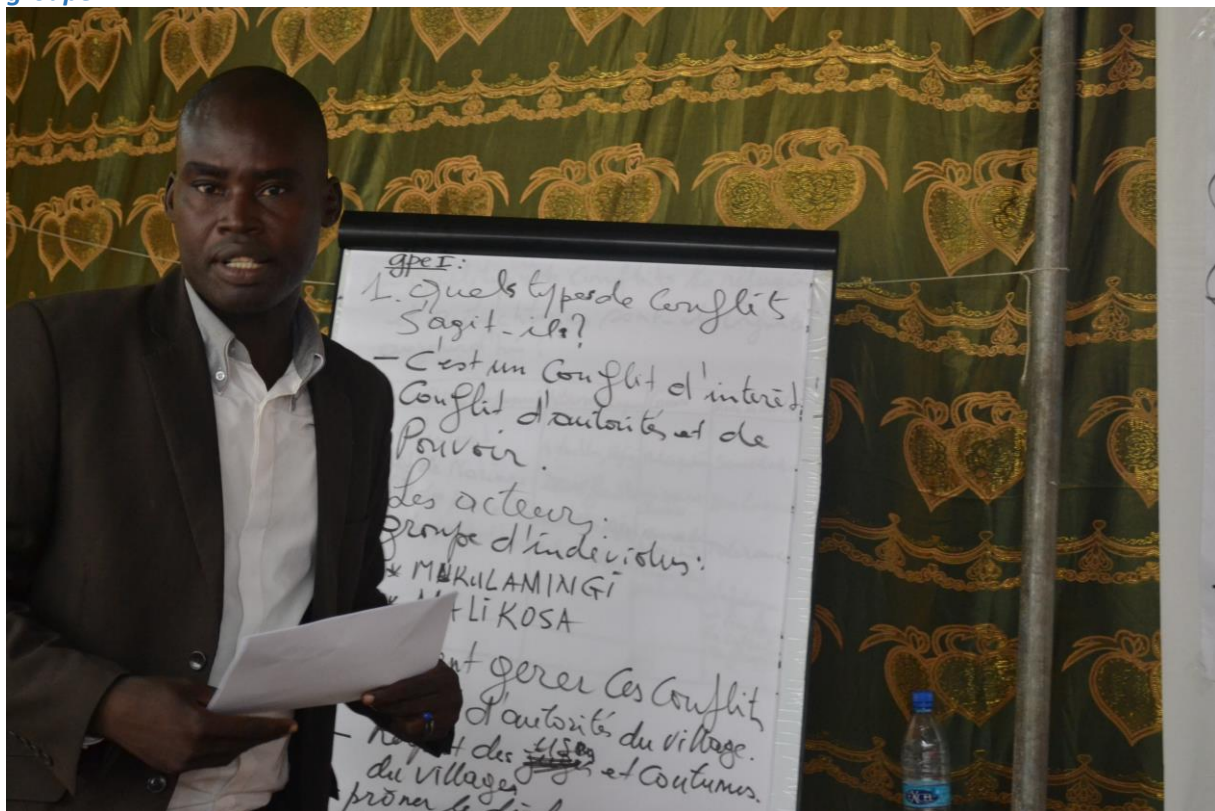 gpe I:
1. Quels types de Conflits
S'agit-ils?
- C'est un Conflit d'intérêt
- Conflit d'autorités et de
Pouvoir.
Les acteurs:
groupe d'individus:
* MUKULAMINGI
LIKOSA
gerer Ces Conflits
d'autorités du village.
- des us et Coutumes
du village
prôner le